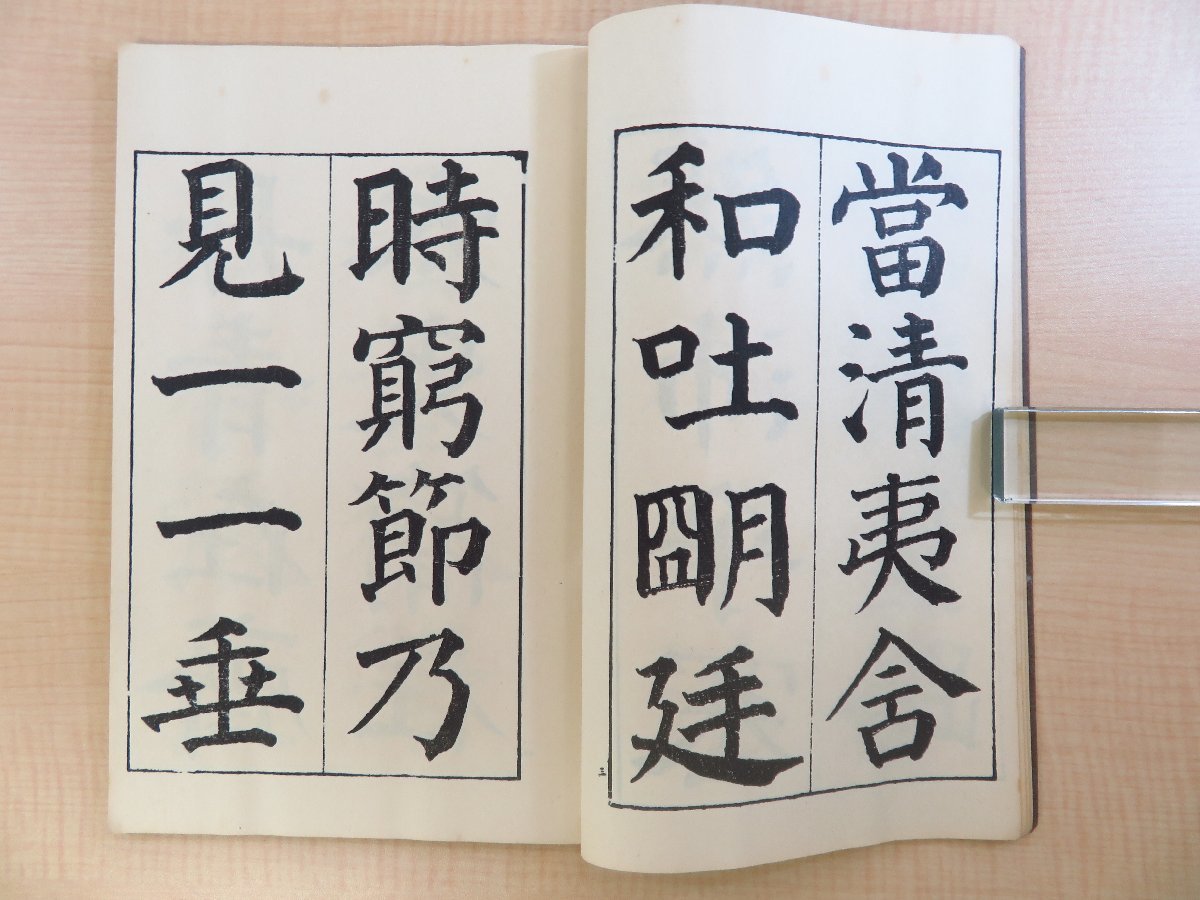 當清夷舍
和吐朙廷
時窮節乃
見一一垂
三